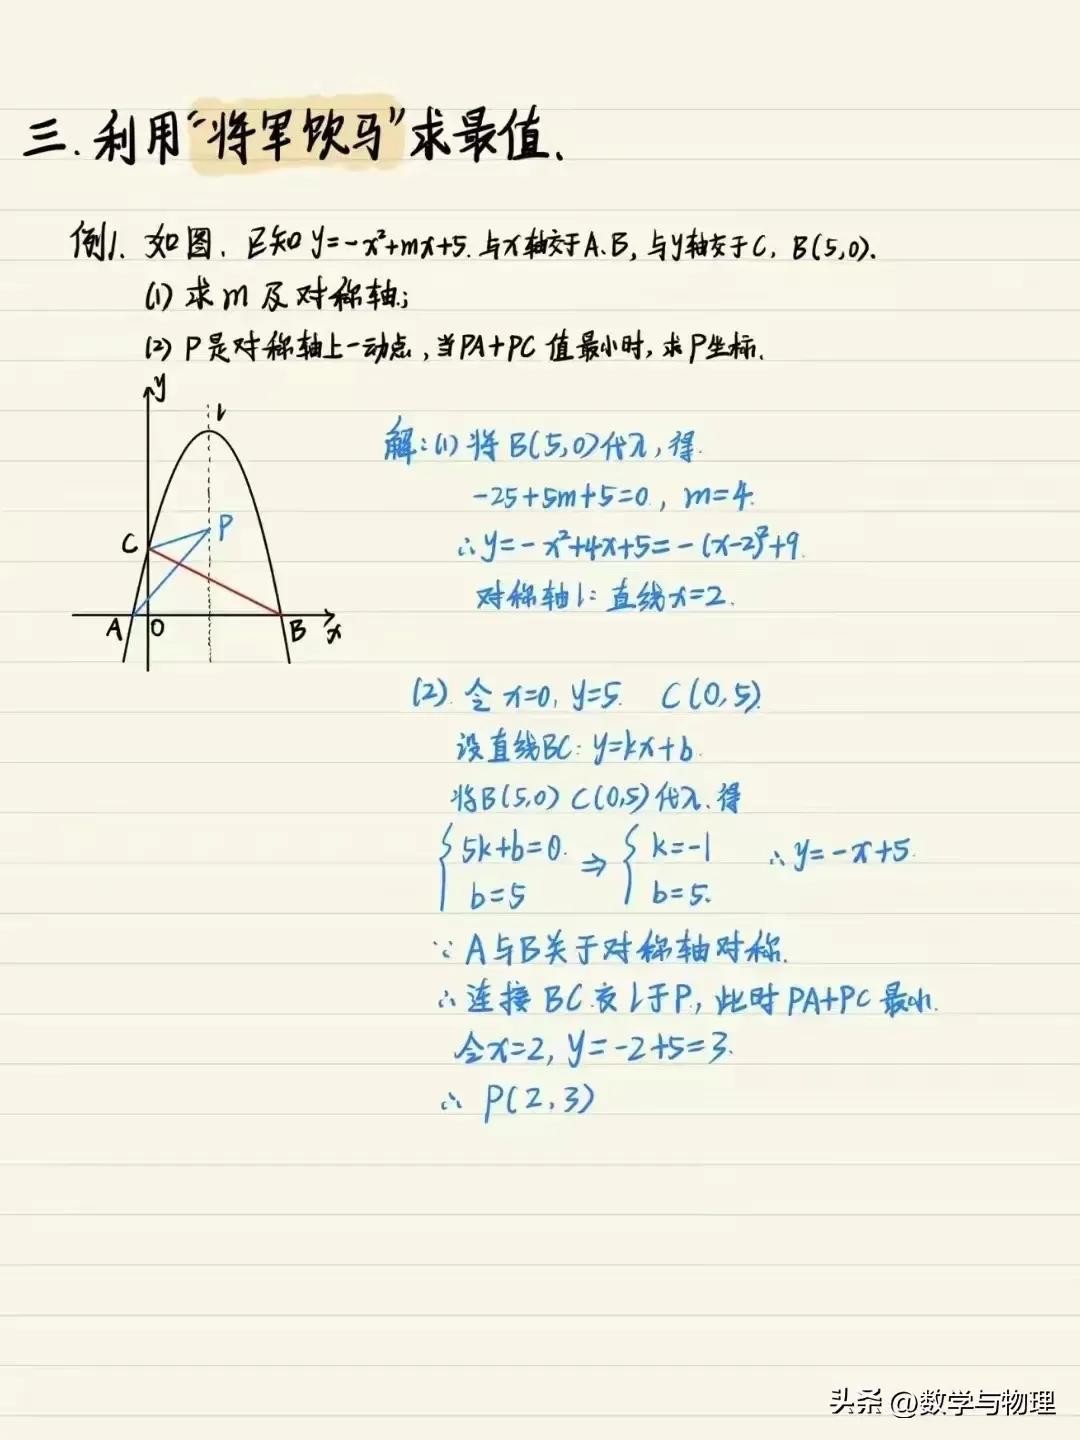 三.利用“将军饮马”求最值.
例1. 如图,已知y=-x²+mx+5.与x轴交于A.B,与y轴交于C, B(5,0).
(1) 求m及对称轴;
(2) P是对称轴上一动点,当PA+PC值最小时,求P坐标.
y
l
P
C
A
O
B
x
解:(1)将B(5,0)代入,得.
-25+5m+5=0, m=4.
∴y=-x²+4x+5=-(x-2)²+9.
对称轴l:直线x=2.
(2).令x=0, y=5. C(0,5).
设直线BC: y=kx+b.
将B(5,0) C(0,5)代入.得
{5k+b=0. ⇒ {k=-1 ∴y=-x+5.
b=5 b=5.
∵A与B关于对称轴对称.
∴连接BC交l于P,此时PA+PC最小.
令x=2, y=-2+5=3.
∴ P(2,3)
头条 @数学与物理